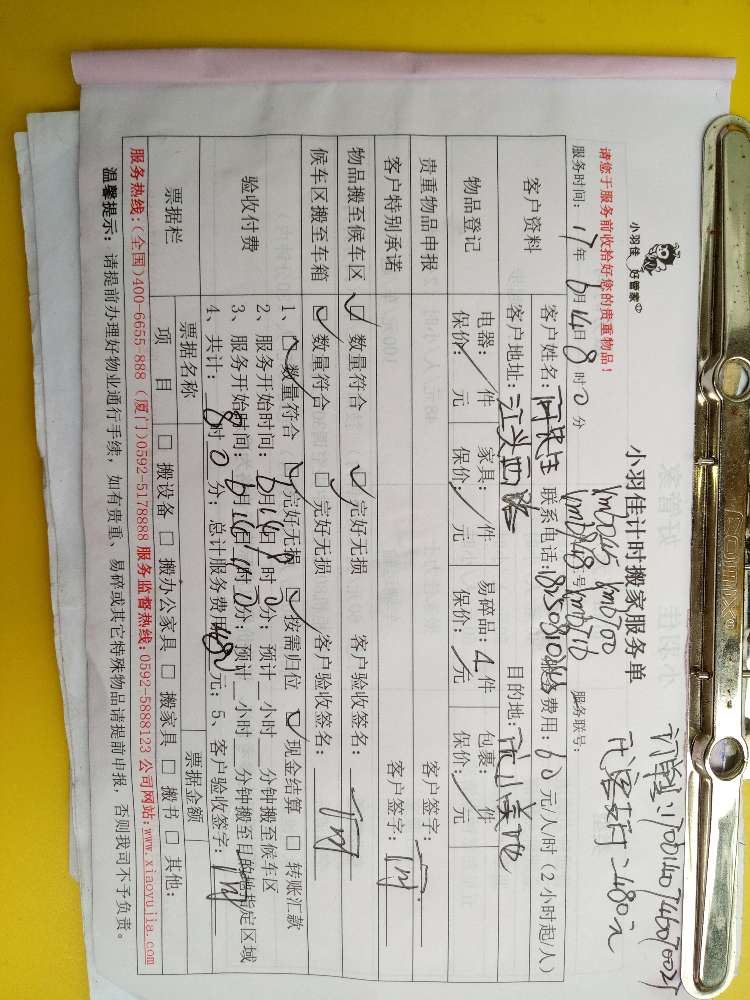 小羽佳 好管家
小羽佳计时搬家服务单
请您于服务前收拾好您的贵重物品！
服务时间：17年6月14日8时0分 服务联号：
客户资料
客户姓名： 联系电话： 费用：60元/人/时（2小时起/人）
客户地址：江头西路 目的地：
物品登记
电器： 件 家具： 件 易碎品：4件 包裹： 件
保价： 元 保价： 元 保价： 元 保价： 元
贵重物品申报 客户签字：
客户特别承诺 客户签字：
物品搬至候车区 数量符合 完好无损 客户验收签名：
候车区搬至车箱 数量符合 完好无损 客户验收签名：
验收付费
1、数量符合 完好无损 按需归位 现金结算 转账汇款
2、服务开始时间：6月14日 时0分；预计 小时 分钟搬至候车区
3、服务开始时间： 月 日 时 分；预计 小时 分钟搬至目的地指定区域
4、共计：8时0分；总计服务费用480元；5、客户验收签字：
票据栏
票据名称 票据金额
项 目 搬设备 搬办公家具 搬家具 搬书 其他：
服务热线：(全国)400-6655-888 (厦门)0592-5178888 服务监督热线：0592-5888123 公司网站：www.xiaoyujia.com
温馨提示：请提前办理好物业通行手续，如有贵重、易碎或其它特殊物品请提前申报，否则我司不予负责。